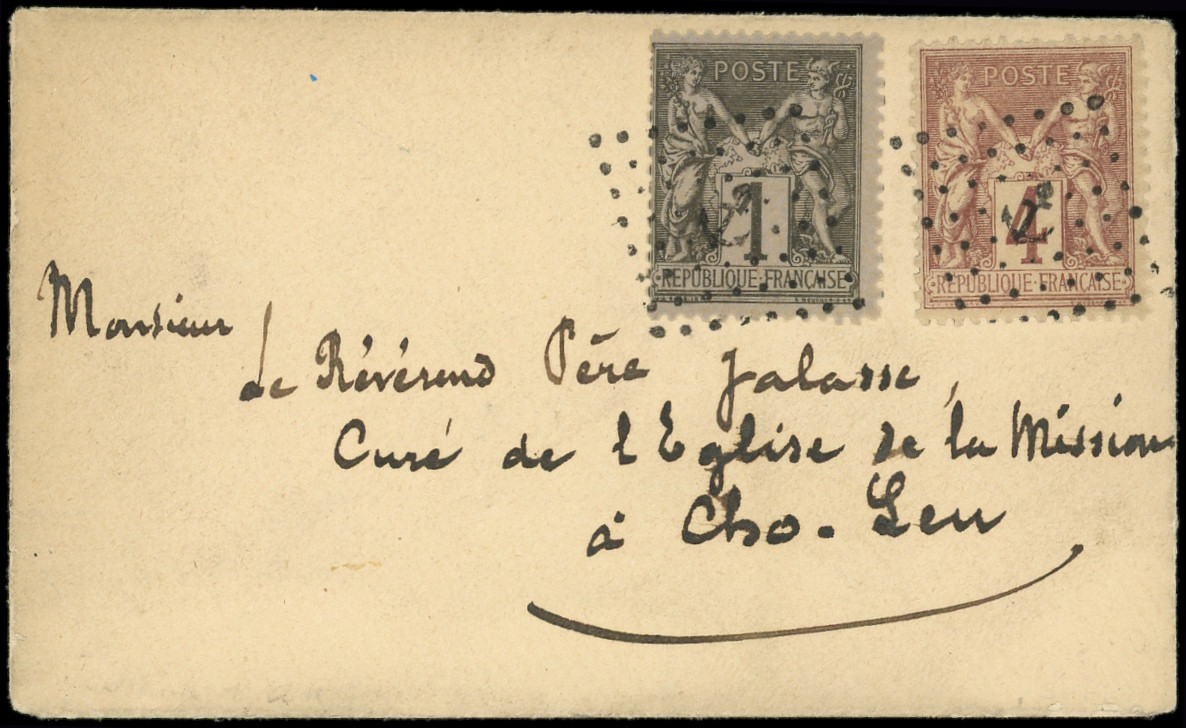 POSTE
1
REPUBLIQUE·FRANÇAISE
POSTE
4
REPUBLIQUE·FRANÇAISE
Monsieur
le Révérend Père Jalasse,
Curé de l'Eglise de la Mission
à Cho-Leu